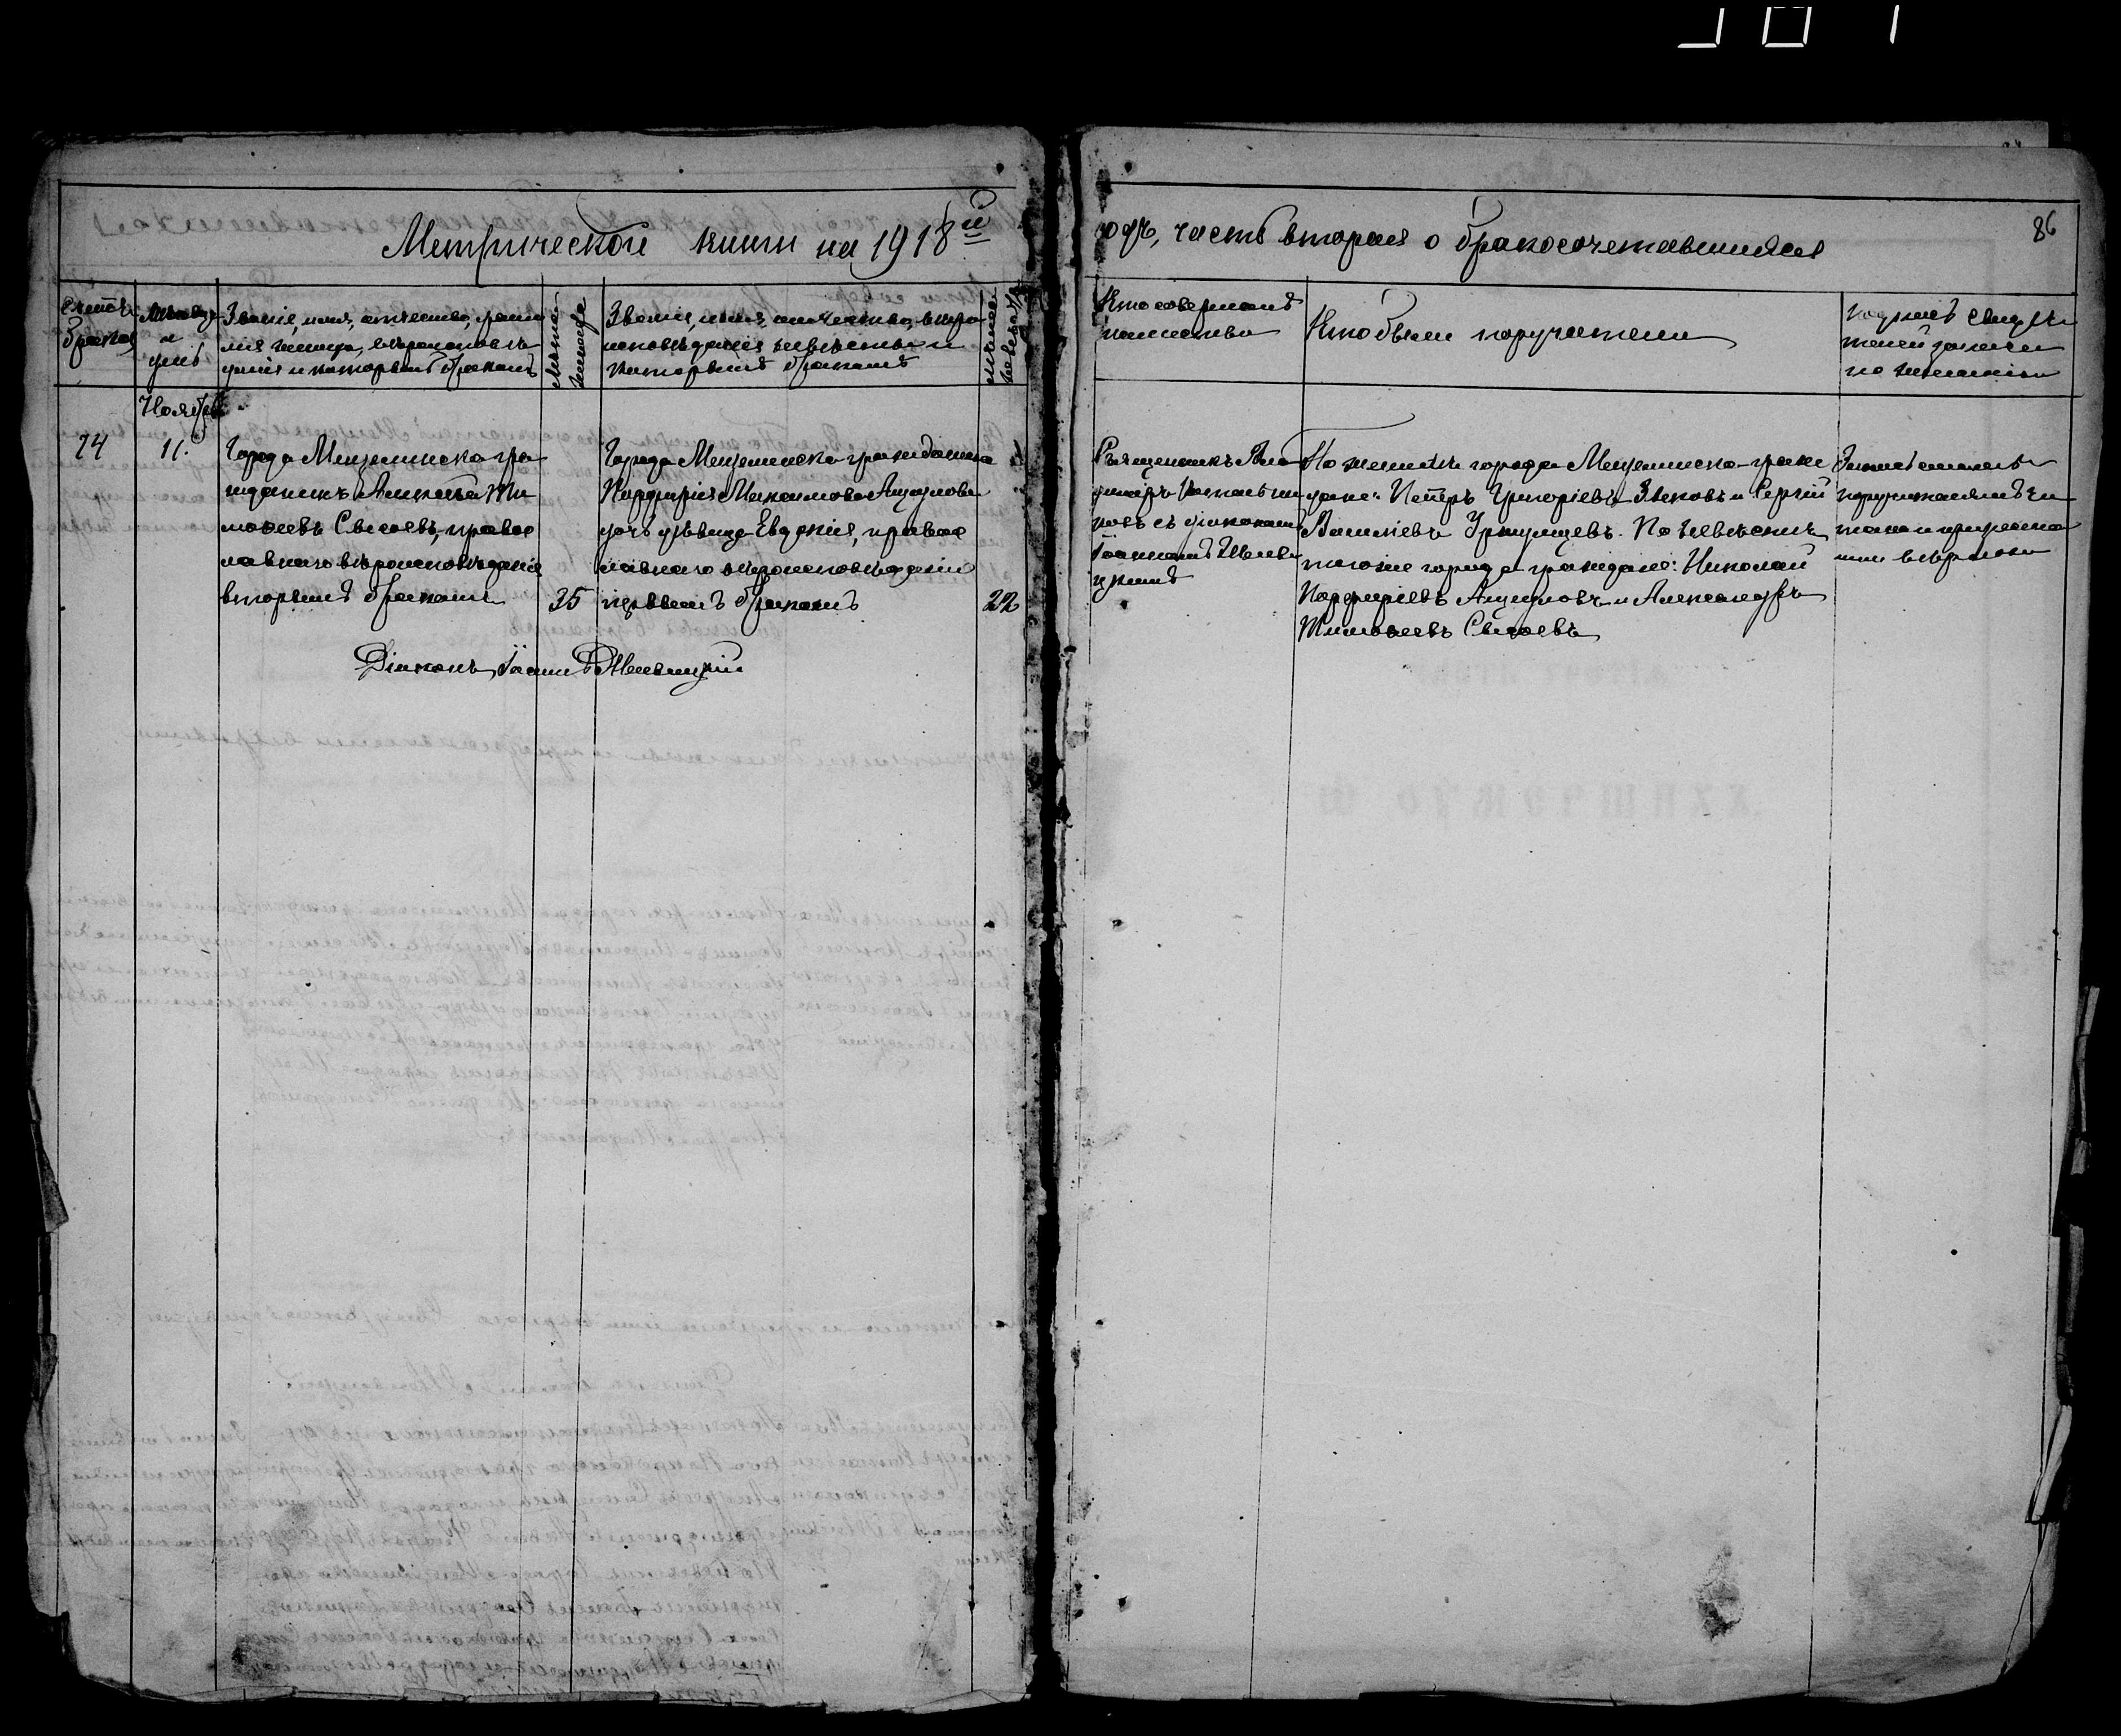 Метрической книги на 1918й
годъ, часть вторая о бракосочетавшихся
86
Счетъ
браковъ
Мѣсяцъ
и
день
Званіе, имя, отчество, фами
лія жениха, вѣроисповѣ
данія и которымъ бракомъ
Лѣта
жениха
Званіе, имя, отчество, вѣро
исповѣданія невѣсты и
которымъ бракомъ
Лѣта
невѣсты
Кто совершалъ
таинство
Кто были поручители
подпись свидѣ
телей записи
по желанію
Ноябрь
24
11.
Города Мензелинска гра
жданинъ Алексѣй Ти
моѳеевъ Сысоевъ, право
лавнаго вѣроисповѣданія
вторымъ бракомъ
35
Города Мензелинска гражданина
Парфирія Максимова
дочь дѣвица Евдокія, правос
лавнаго вѣроисповѣданія
первымъ бракомъ
22
Діаконъ Іоаннъ
Священникъ Вла
димиръ
съ діакономъ
Іоанномъ
По женихѣ города Мензелинска граж
дане: Петръ Григоріевъ Зыковъ и Сергій
Василіевъ. По невѣстѣ
того же города граждане: Николай
Парфиріевъ и Александръ
Тимоѳеевъ Сысоевъ